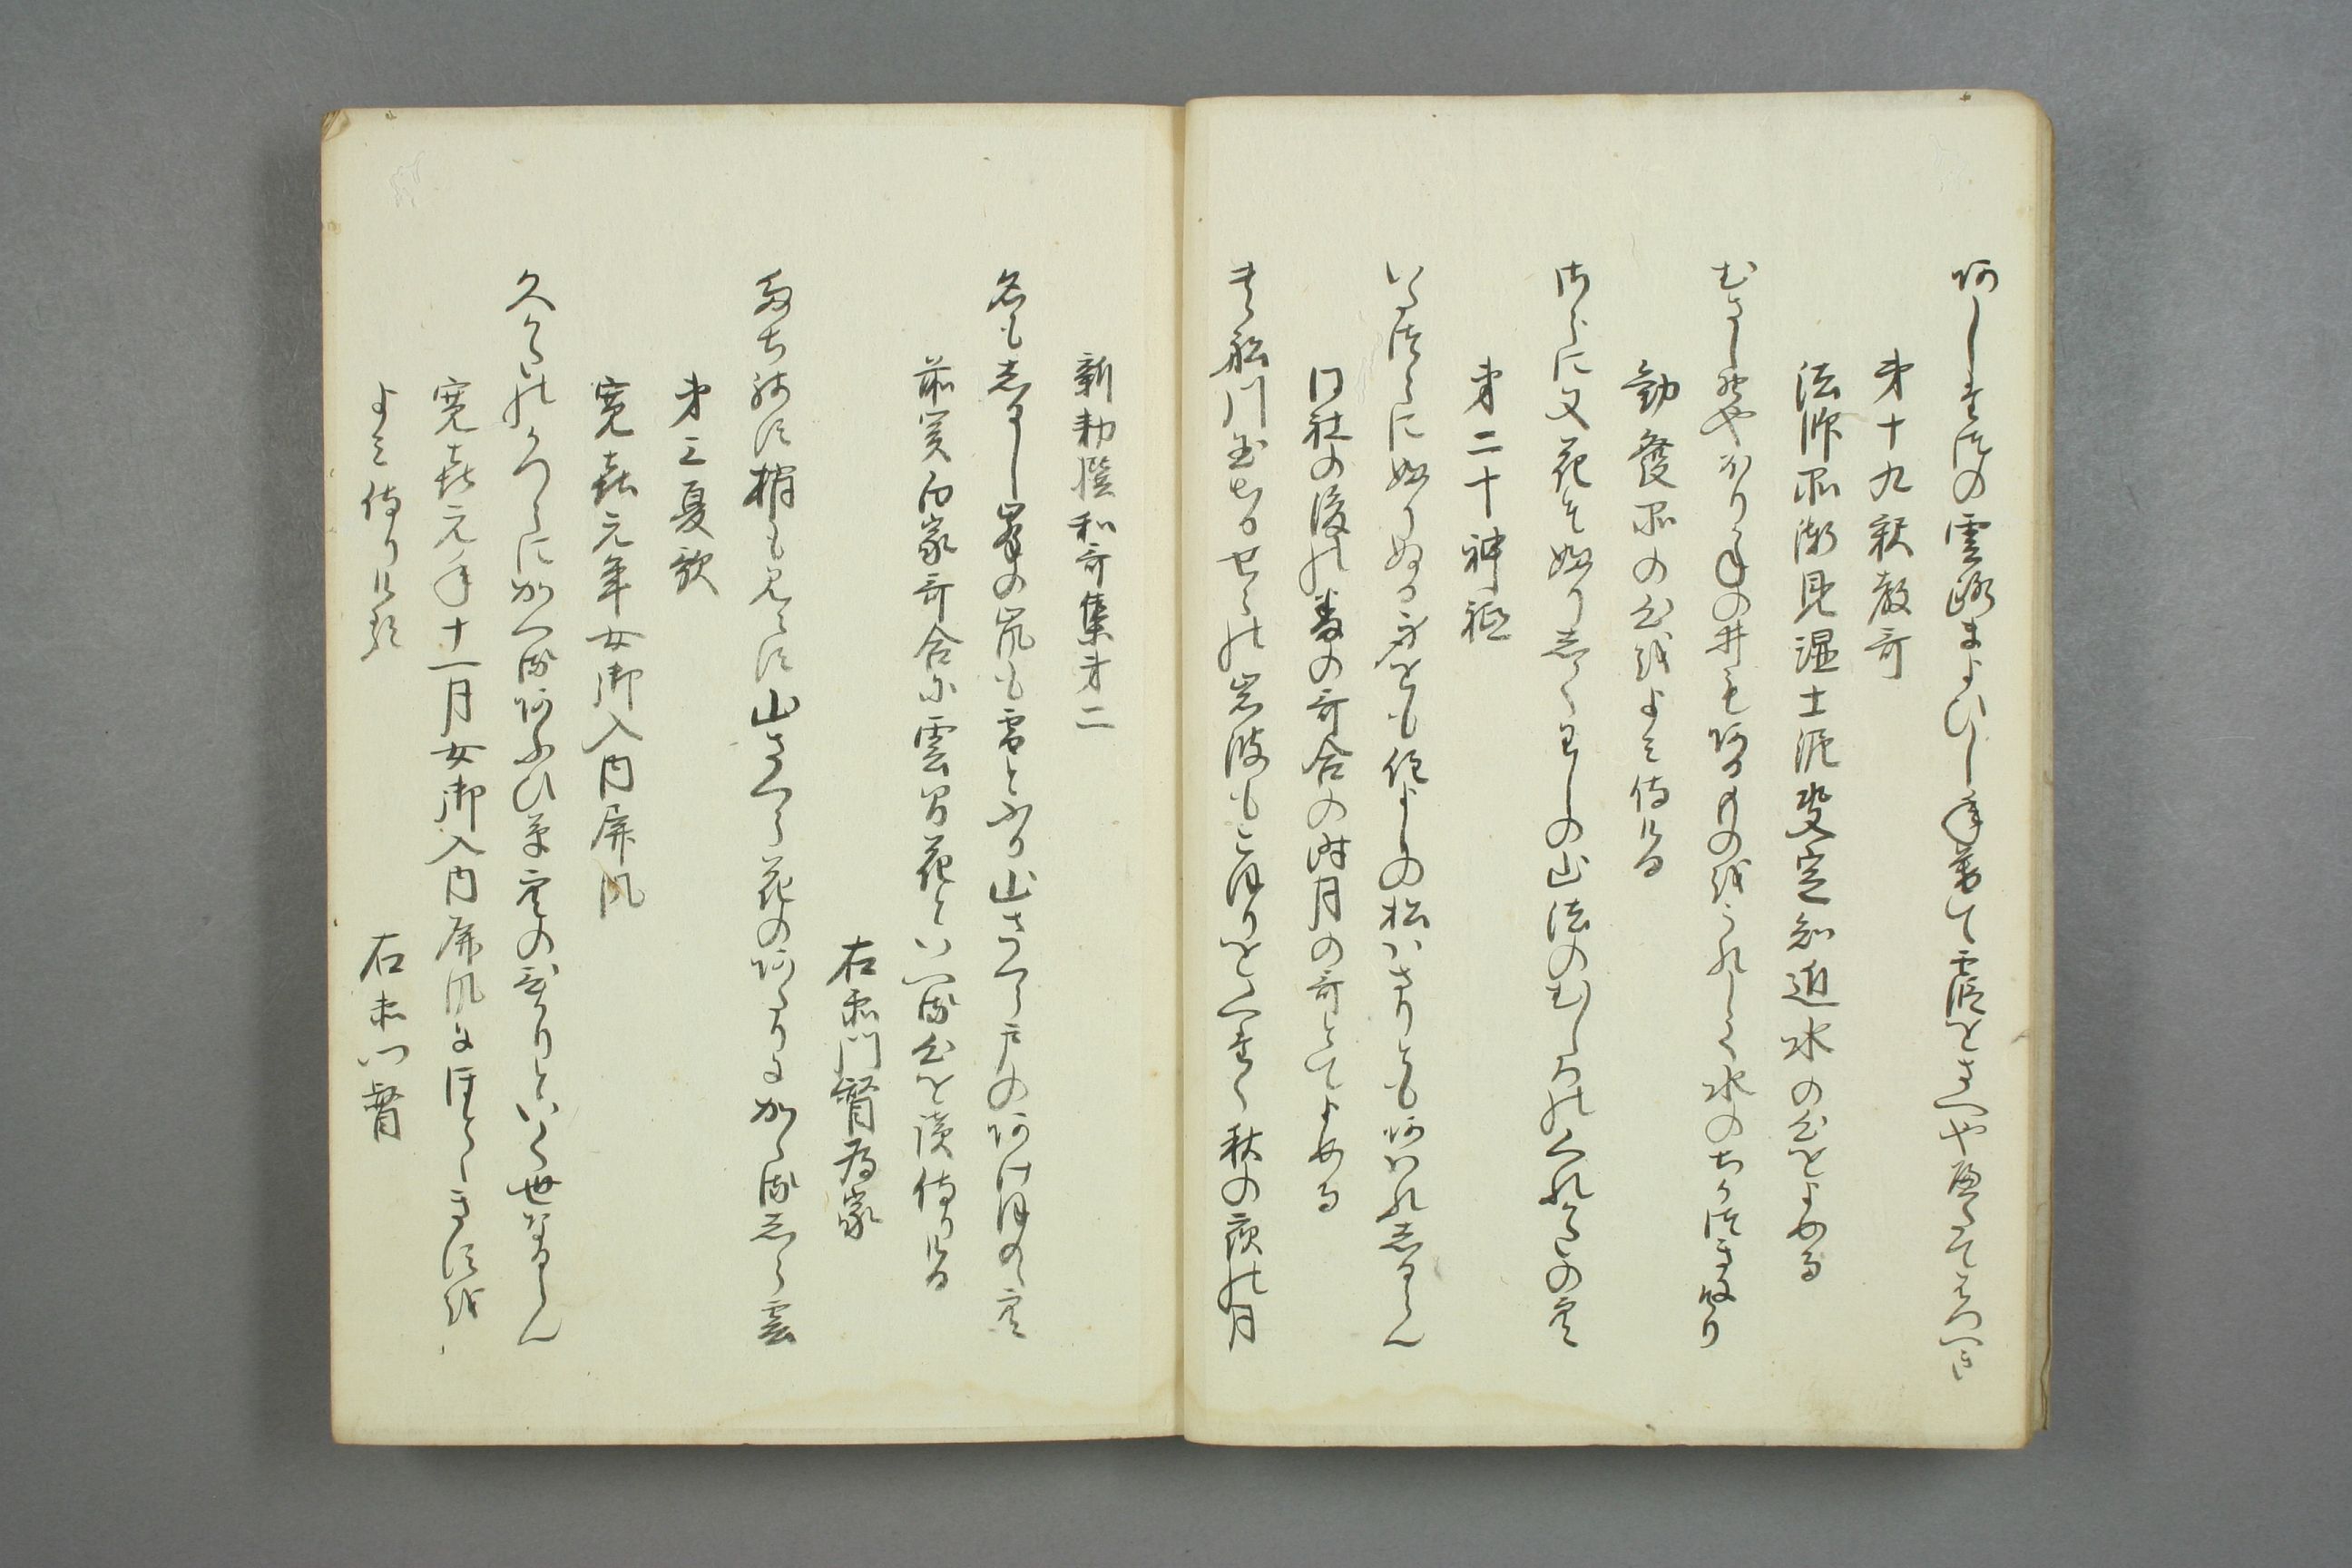 あしたつの雲路まよひし年暮て霞をさへやへたてはつへき
第十九釈教哥
法師品漸見湿土泥決定知近水の心をよめる
むさしのやほりかねの井もあるものをうれしく水のちかつきにけり
勧發品の心をよみ侍ける
さらに又花そふりしくわしの山法のむしろのくれかたの空
第二十神祇
いたつらにふりぬる身をも住よしの松はさりともあはれしるらん
同社の後の番の哥合の時月の哥とてよめる
きふね川玉ちるせゝの岩波もこほりをくたく秋の夜の月
新勅撰和哥集第二
名もしるし峯の嵐も雪とふる山さくら戸のあけほのゝ空
前関白家哥合に雲間花といへる心を讀侍ける
右衛門督為家
たちのこす梢も見えす山さくら花のあたりにかゝるしら雲
第三夏歌
寛喜元年女御入内屏風
久かたのかつらにかくるあふひ草空のひかりにいく世なるらん
寛喜元年十一月女御入内屏風にほとゝきすを
よみ侍りける
右衛門督